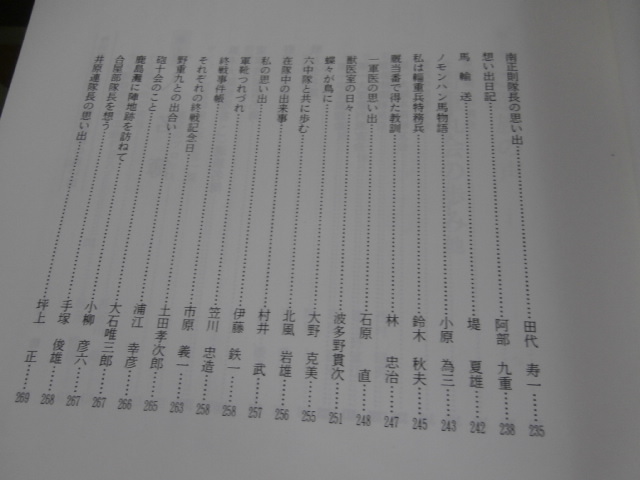 南正則隊長の思い出……田代 寿一……235
想い出日記……阿部 九重……238
馬輸送……堤 夏雄……242
ノモンハン馬物語……小原 為三……243
私は輜重兵特務兵……鈴木 秋夫……245
厩当番で得た教訓……林 忠治……247
一軍医の思い出……石原 直……248
獣医室の日々……波多野貫次……251
蝶々が鳥に……大野 克美……255
六中隊と共に歩む……北風 岩雄……256
在隊中の出来事……村井 武……257
私の思い出……伊藤 鉄一……258
軍靴つれづれ……笠川 忠造……258
終戦事件帳……市原 義一……263
それぞれの終戦記念日……土田孝次郎……265
野重九との出合い……浦江 幸彦……266
砲十会のこと……大石唯三郎……267
鹿島灘に陣地跡を訪ねて……小柳 彦六……267
合屋部隊長を想う……手塚 俊雄……268
井原連隊長の思い出……坪上 正……269